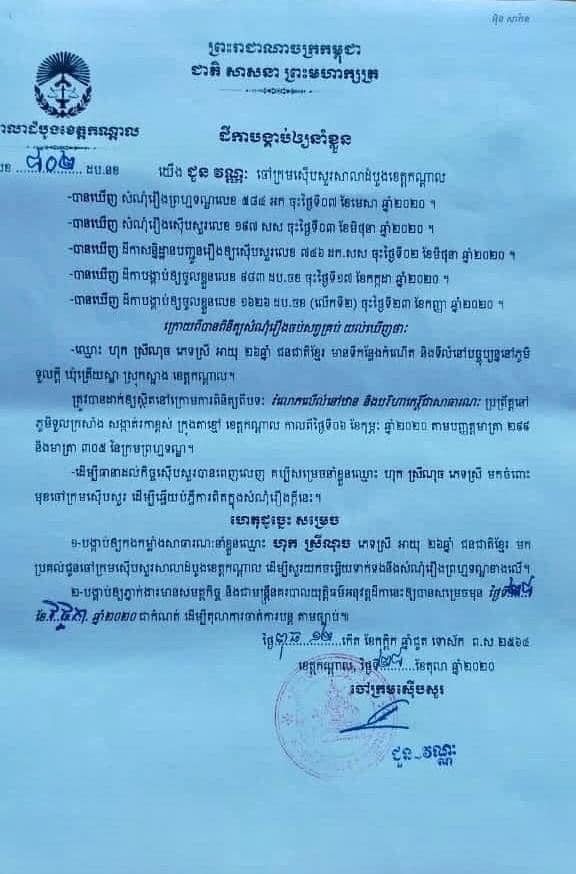 ព្រះរាជាណាចក្រកម្ពុជា
ជាតិ សាសនា ព្រះមហាក្សត្រ
សាលាដំបូងខេត្តកណ្ដាល
ដីកាបង្គាប់ឲ្យនាំខ្លួន
លេខ ៨០២ ដប.នខ
យើង ជួន វណ្ណៈ ចៅក្រមស៊ើបសួរសាលាដំបូងខេត្តកណ្ដាល
-បានឃើញ សំណុំរឿងព្រហ្មទណ្ឌលេខ ៥៨៤ អក ចុះថ្ងៃទី០៧ ខែមេសា ឆ្នាំ២០២០ ។
-បានឃើញ សំណុំរឿងស៊ើបសួរលេខ ១៩៧ សស ចុះថ្ងៃទី០៣ ខែមិថុនា ឆ្នាំ២០២០ ។
-បានឃើញ ដីកាសន្និដ្ឋានបញ្ជូនរឿងឲ្យស៊ើបសួរលេខ ៧៤៦ ដក.សស ចុះថ្ងៃទី០២ ខែមិថុនា ឆ្នាំ២០២០ ។
-បានឃើញ ដីកាបង្គាប់ឲ្យចូលខ្លួនលេខ ៩៨៣ ដប.ចខ ចុះថ្ងៃទី១៧ ខែកក្កដា ឆ្នាំ២០២០ ។
-បានឃើញ ដីកាបង្គាប់ឲ្យចូលខ្លួនលេខ ១៦២៦ ដប.ចខ (លើកទី២) ចុះថ្ងៃទី២៣ ខែកញ្ញា ឆ្នាំ២០២០ ។
ក្រោយពីបានពិនិត្យសំណុំរឿងចប់សព្វគ្រប់ យល់ឃើញថាៈ
-ឈ្មោះ ហុក ស្រីណុច ភេទស្រី អាយុ ២៦ឆ្នាំ ជនជាតិខ្មែរ មានទីកន្លែងកំណើត និងទីលំនៅបច្ចុប្បន្ននៅភូមិ
ទួលក្ដី ឃុំត្រើយស្លា ស្រុកស្អាង ខេត្តកណ្ដាល។
ត្រូវបានដាក់ឲ្យស្ថិតនៅក្រោមការពិនិត្យពីបទៈ រំលោភលើលំនៅឋាន និងបរិហាកេរ្តិ៍ជាសាធារណៈ ប្រព្រឹត្តនៅ
ភូមិទួលក្រសាំង សង្កាត់រកាខ្ពស់ ក្រុងតាខ្មៅ ខេត្តកណ្ដាល កាលពីថ្ងៃទី០៦ ខែកុម្ភៈ ឆ្នាំ២០២០ តាមបញ្ញត្តមាត្រា ២៩៩
និងមាត្រា ៣០៥ នៃក្រមព្រហ្មទណ្ឌ។
-ដើម្បីធានាដល់កិច្ចស៊ើបសួរបានពេញលេញ គប្បីសម្រេចនាំខ្លួនឈ្មោះ ហុក ស្រីណុច ភេទស្រី មកចំពោះ
មុខចៅក្រមស៊ើបសួរ ដើម្បីឆ្លើយបំភ្លឺការពិតក្នុងសំណុំរឿងក្ដីនេះ។
ហេតុដូច្នេះ សម្រេច
១-បង្គាប់ឲ្យកងកម្លាំងសាធារណៈនាំខ្លួនឈ្មោះ ហុក ស្រីណុច ភេទស្រី អាយុ ២៦ឆ្នាំ ជនជាតិខ្មែរ មក
ប្រគល់ជូនចៅក្រមស៊ើបសួរសាលាដំបូងខេត្តកណ្ដាល ដើម្បីសួរយកចម្លើយទាក់ទងនឹងសំណុំរឿងព្រហ្មទណ្ឌខាងលើ។
២-បង្គាប់ឲ្យភ្នាក់ងារមានសមត្ថកិច្ច និងជាមន្ត្រីនគរបាលយុត្តិធម៌អនុវត្តដីកានេះឲ្យបានសម្រេចមុន ថ្ងៃទី២៨
ខែវិច្ឆិកា ឆ្នាំ២០២០ ជាកំណត់ ដើម្បីតុលាការចាត់ការបន្ត តាមច្បាប់៕
ថ្ងៃពុធ ១២កើត ខែកត្តិក ឆ្នាំជូត ទោស័ក ព.ស ២៥៦៤
ខេត្តកណ្ដាល, ថ្ងៃទី២៨ ខែតុលា ឆ្នាំ២០២០
ចៅក្រមស៊ើបសួរ
ជួន វណ្ណៈ